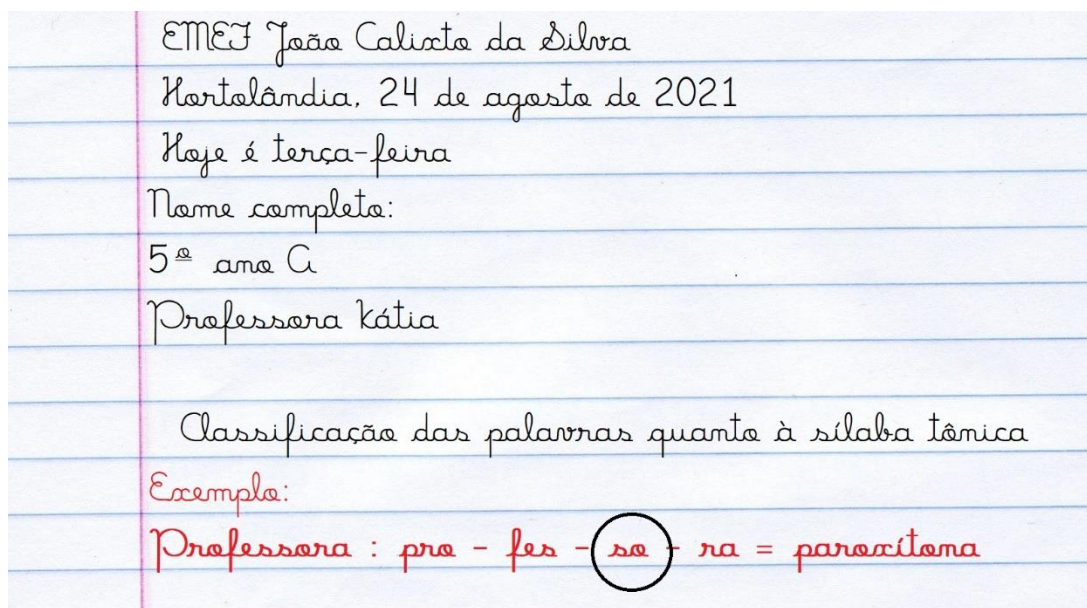 EMEF João Calixto da Silva
Hortolândia, 24 de agosto de 2021
Hoje é terça-feira
Nome completo:
5º ano A
Professora Kátia
Classificação das palavras quanto à sílaba tônica
Exemplo:
Professora : pro - fes - so - ra = paroxítona